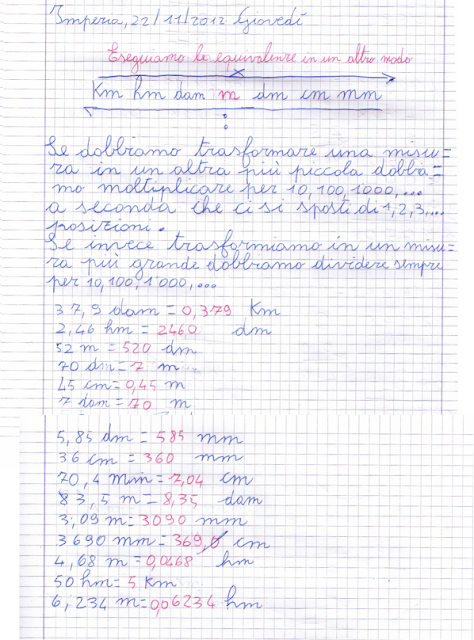 Imperia, 22/11/2012 Giovedí
Eseguiamo le equivalenze in un altro modo
×
Km hm dam m dm cm mm
:
Se dobbiamo trasformare una misu=
ra in un altra più piccola dobbia=
mo moltiplicare per 10, 100, 1000, ...
a seconda che ci si sposti di 1, 2, 3, ...
posizioni.
Se invece trasformiamo in un misu=
ra più grande dobbiamo dividere sempre
per 10, 100, 1000, ...
37,9 dam = 0,379 Km
2,46 hm = 2460 dm
52 m = 520 dm
70 dm = 7 m
45 cm = 0,45 m
7 dam = 70 m
5,85 dm = 585 mm
36 cm = 360 mm
70,4 mm = 7,04 cm
83,5 m = 8,35 dam
3,09 m = 3090 mm
3690 mm = 369,0 cm
4,68 m = 0,0468 hm
50 hm = 5 Km
6,234 m = 0,06234 hm